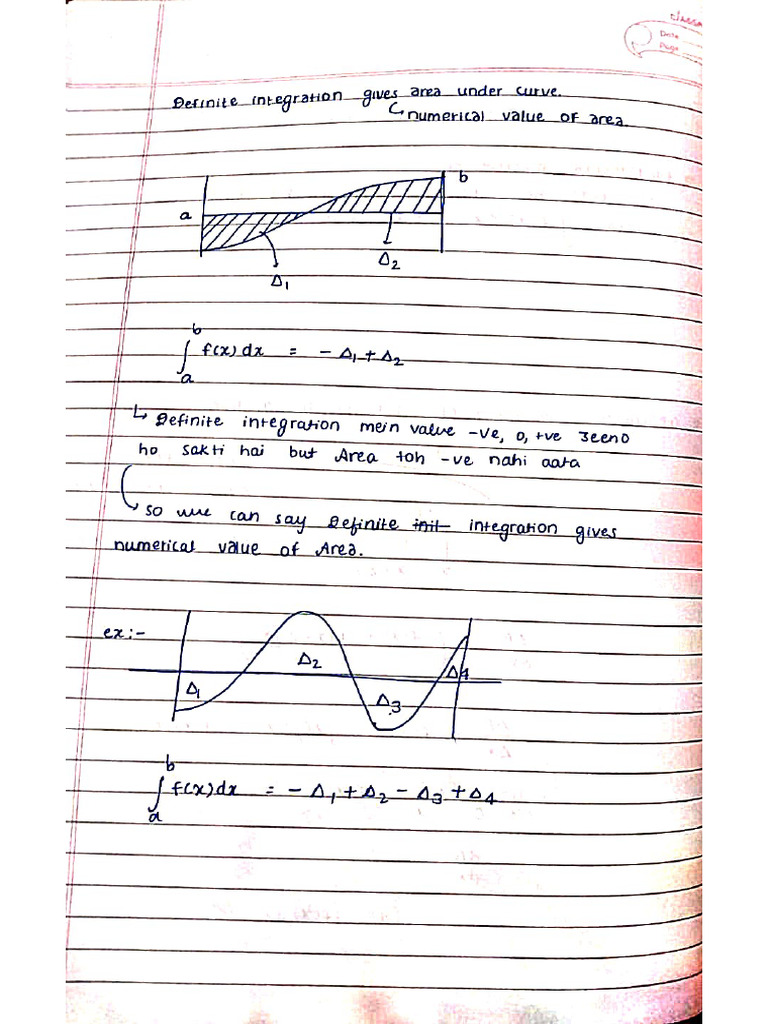 Date
Page
Definite integration gives area under curve.
↳ numerical value of area.
b
a
Δ2
Δ1
∫_a^b f(x) dx = - Δ1 + Δ2
↳ Definite integration mein value -ve, 0, +ve 3eeno
ho sakti hai but Area toh -ve nahi aata
↳ so wue can say Definite init integration gives
numerical value of Area.
ex:-
Δ2
Δ4
Δ1
Δ3
∫_a^b f(x) dx = - Δ1 + Δ2 - Δ3 + Δ4